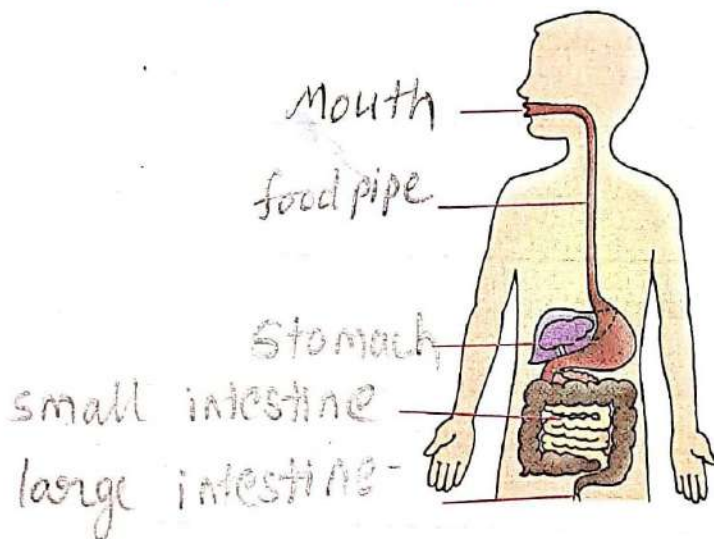 Mouth
food pipe
Stomach
small intestine
large intestine